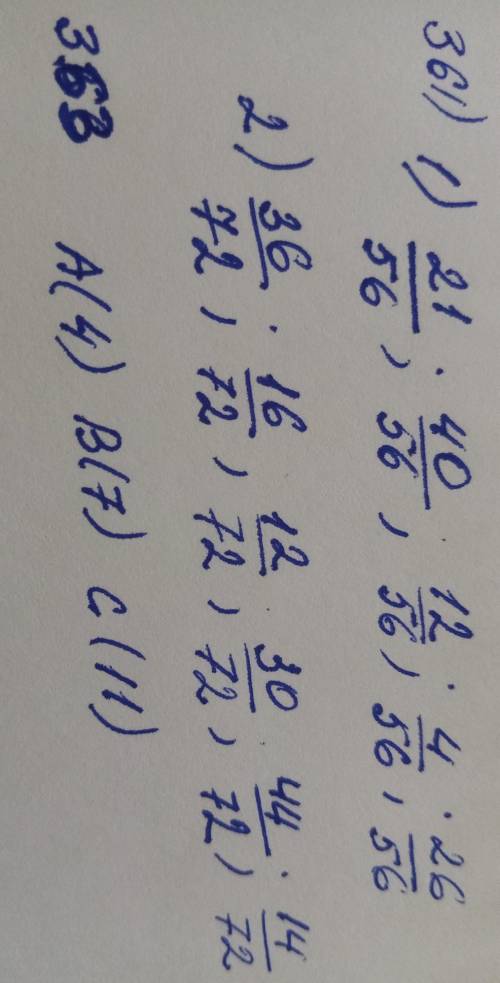 361) 1) 21/56; 40/56, 12/56; 4/56; 26/56
2) 36/72; 16/72, 12/72, 30/72, 44/72; 14/72
363 A(4) B(7) C(11)